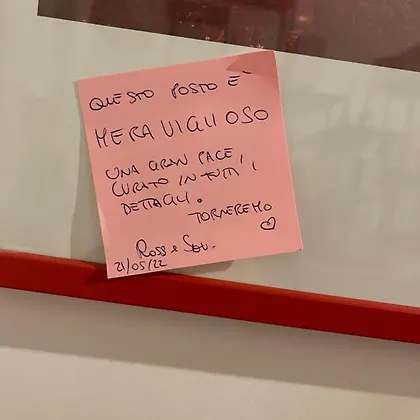 QUESTO POSTO E'
MERAVIGLIOSO
UNA GRAN PACE,
CURATO IN TUTTI I
DETTAGLI.
TORNEREMO
♡
ROSS e
21/05/22